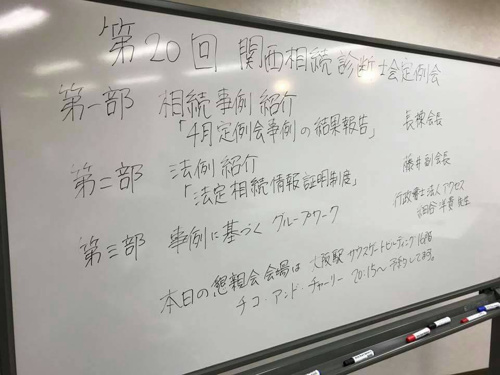 第20回 関西相続診断士会定例会
第一部 相続事例紹介
「4月定例会事例の結果報告」 長棟会長
第二部 法例紹介 藤井副会長
「法定相続情報証明制度」 行政書士法人アクセス
先生
第三部 事例に基づく グループワーク
本日の懇親会会場は 大阪駅 サウスゲートビルディング16階
チコ・アンド・チャーリー 20:15〜 予約してます。